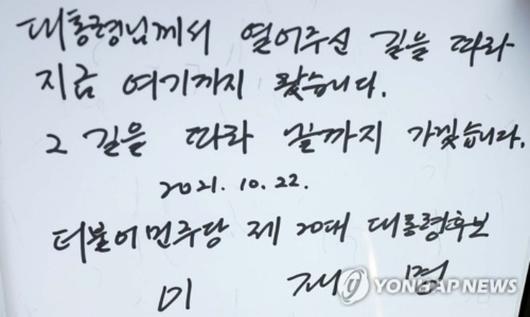 대통령님께서 열어주신 길을 따라
지금 여기까지 왔습니다.
그 길을 따라 끝까지 가겠습니다.
2021. 10. 22.
더불어민주당 제 20대 대통령후보
이 재 명
YONHAP NEWS